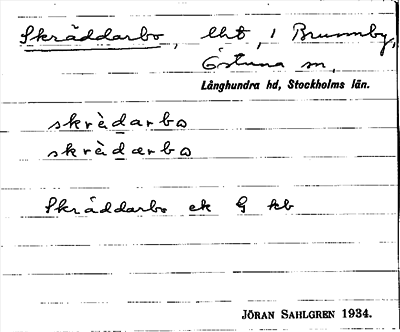 Skräddarbo, lht, i Brunnby,
Östuna sn,
Långhundra hd, Stockholms län.
skrèdarbo
skrèdærbo
Skräddarbo ek G kb
JÖRAN SAHLGREN 1934.